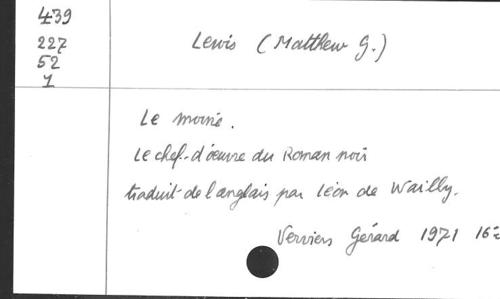 439
227
52
1
Lewis (Matthew G.)
Le moine.
Le chef-d'œuvre du Roman noir
traduit de l'anglais par Léon de Wailly.
Verviers Gérard 1971 16º